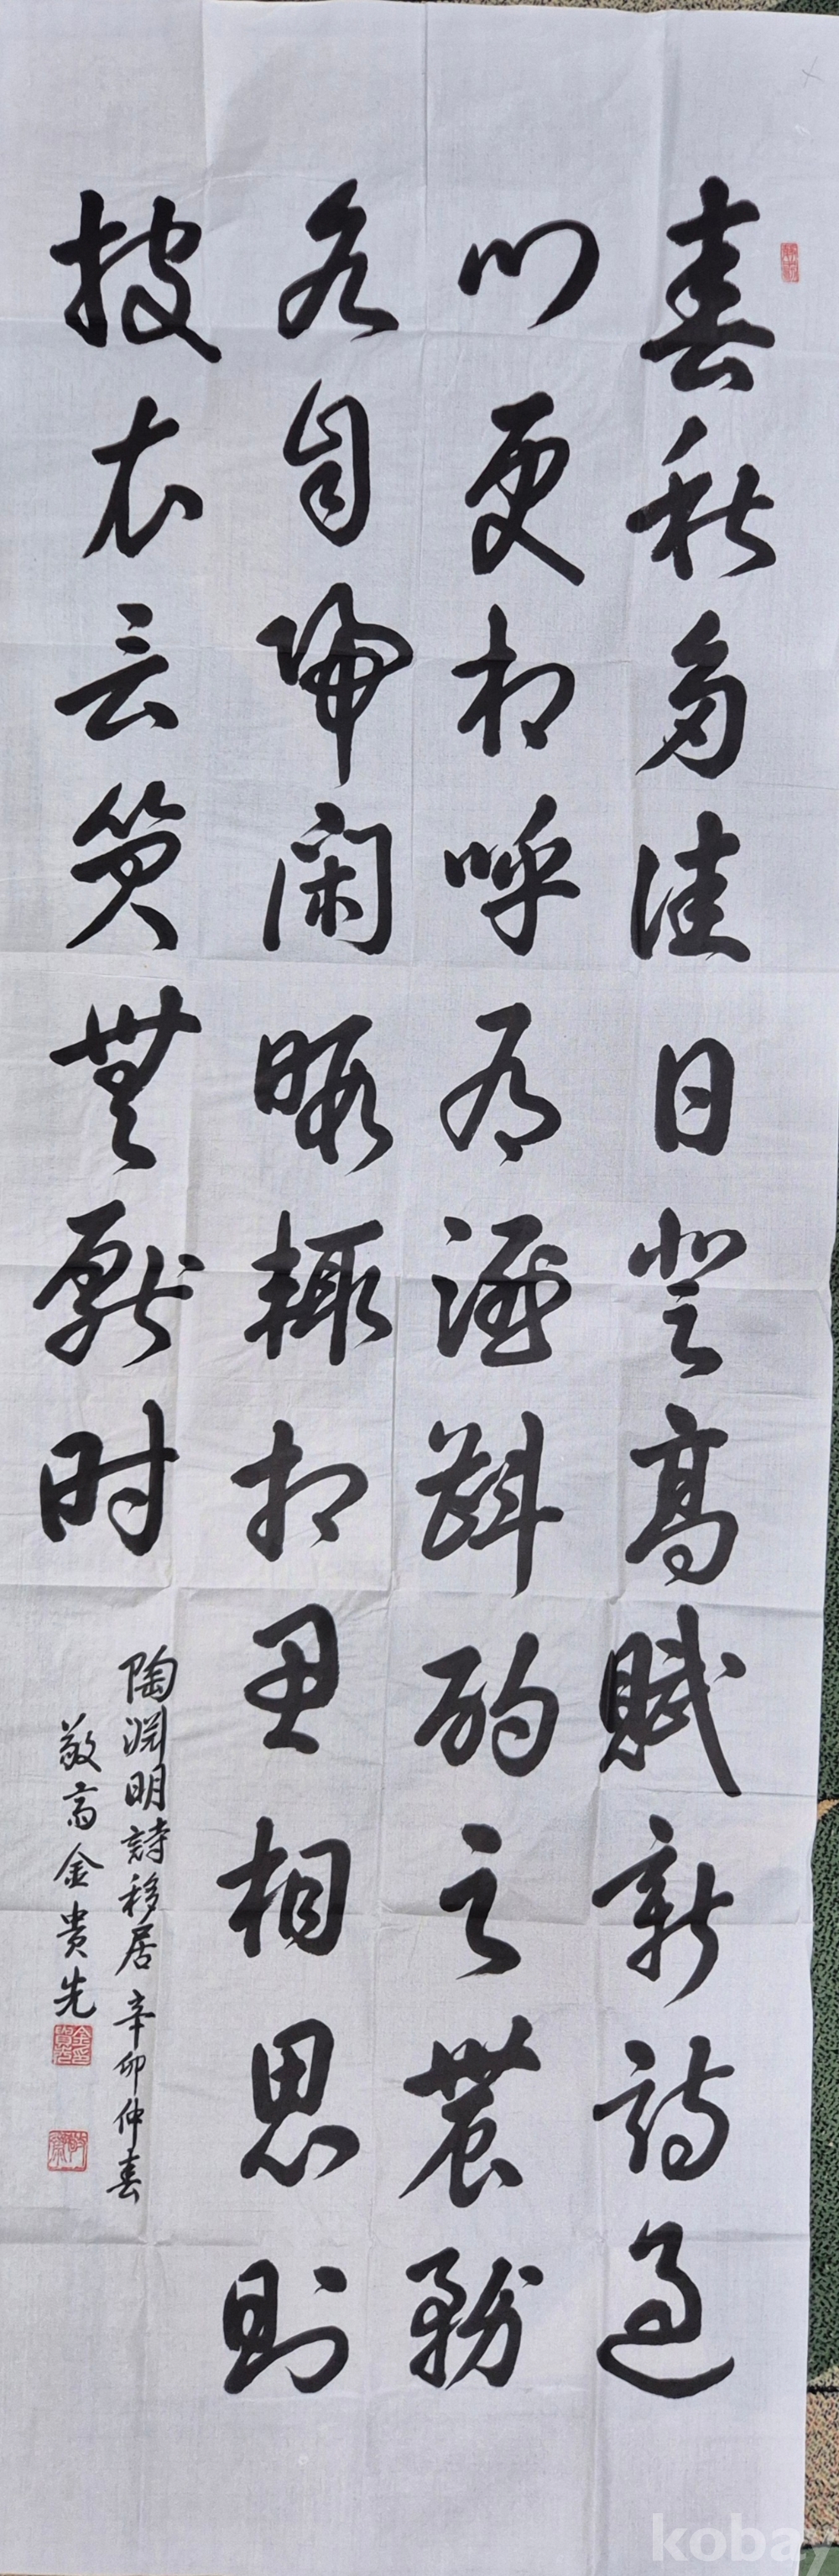 春秋多佳日登高賦新詩過
門更相呼有酒斟酌之農務
各自歸閑暇輒相思相思則
披衣言笑無厭時
陶淵明詩移居 辛卯仲春
敬斋金貴先
kobay